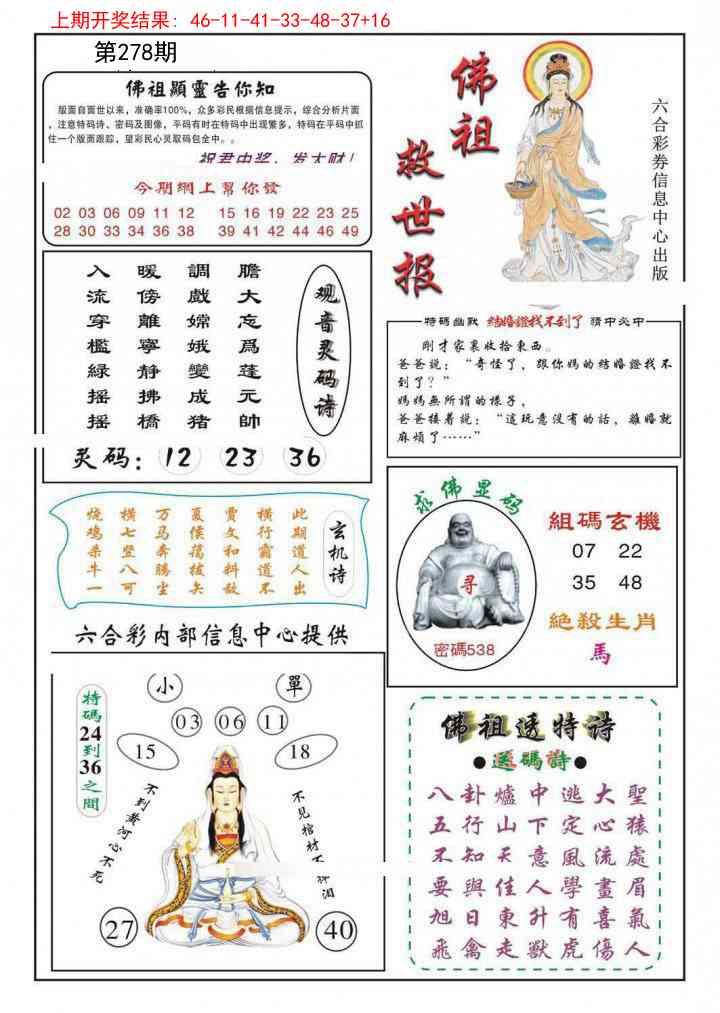 上期开奖结果: 46-11-41-33-48-37+16
第278期
佛祖顯靈告你知
版面自面世以来，准确率100%，众多彩民根据信息提示，综合分析片面
，注意特码诗、密码及图像，平码有时在特码中出现繁多，特码在平码中抓
住一个版面跟踪，望彩民心灵取码包全中。。
祝君中奖，发大财！
今期網上幫你發
02 03 06 09 11 12 15 16 19 22 23 25
28 30 33 34 36 38 39 41 42 44 46 49
佛祖
救世报
六合彩券信息中心出版
入 暖 調 膽
流 傍 戲 大
穿 離 嫦 忘
檻 寧 娥 爲
綠 靜 變 蓬
摇 拂 成 元
摇 橋 猪 帥
观音灵码诗
灵码: 12 23 36
特碼幽默 結婚證找不到了 猜中必中
剛才家裏收拾東西。
爸爸説：“奇怪了，跟你媽的结婚證找不
到了？”
媽媽無所謂的樣子，
爸爸接着説：“這玩意没有的話，離婚就
麻煩了……”
烧 横 万 夏 贾 横 此
鸡 七 马 侯 文 行 期
杀 竖 奔 揭 和 霸 道
牛 八 腾 拔 料 道 人
一 可 尘 矢 敌 不 出
玄机诗
六合彩内部信息中心提供
求佛显码
寻
密碼538
組碼玄機
07 22
35 48
絶殺生肖
馬
特碼24到36之間
小 單
03 06 11
15 18
不到黄河心不死
不见棺材不掉泪
27 40
佛祖透特诗
●送碼詩●
八卦爐中逃大聖
五行山下定心猿
不知天意風流處
要與佳人學畫眉
旭日東升有喜氣
飛禽走獸虎傷人